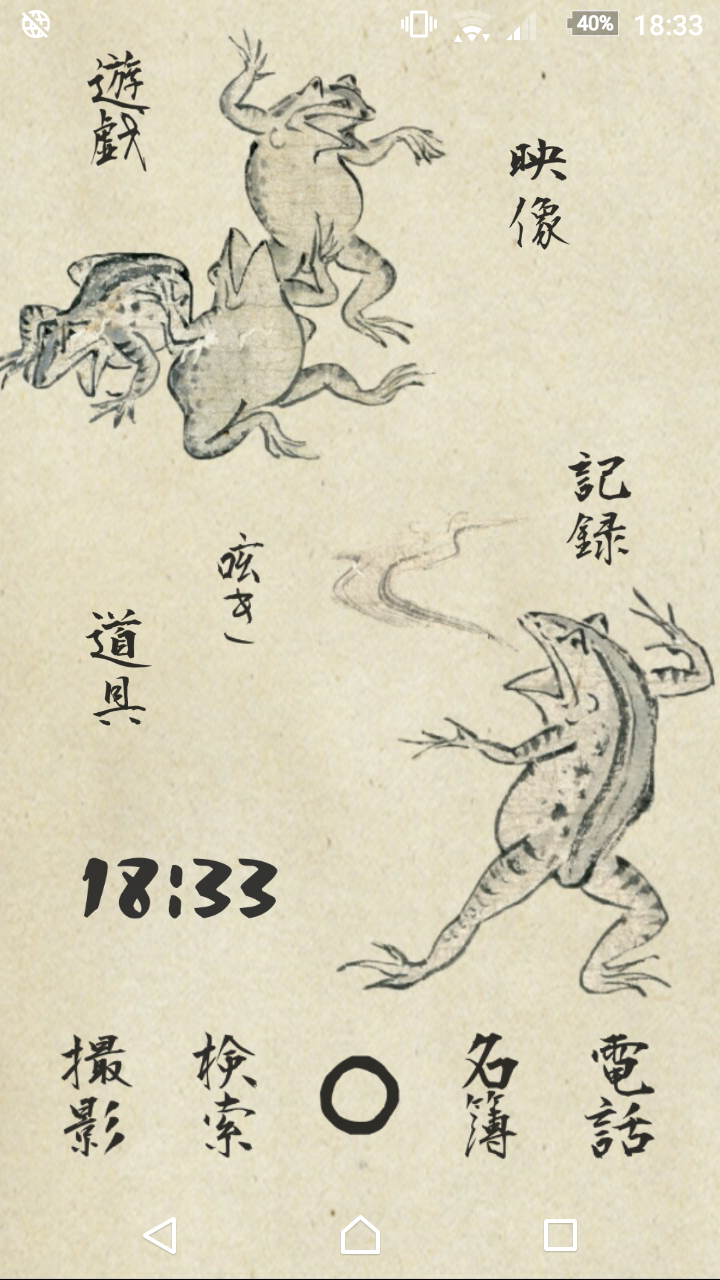 40% 18:33
遊戯
映像
記録
呟き
道具
18:33
撮影
検索
名簿
電話